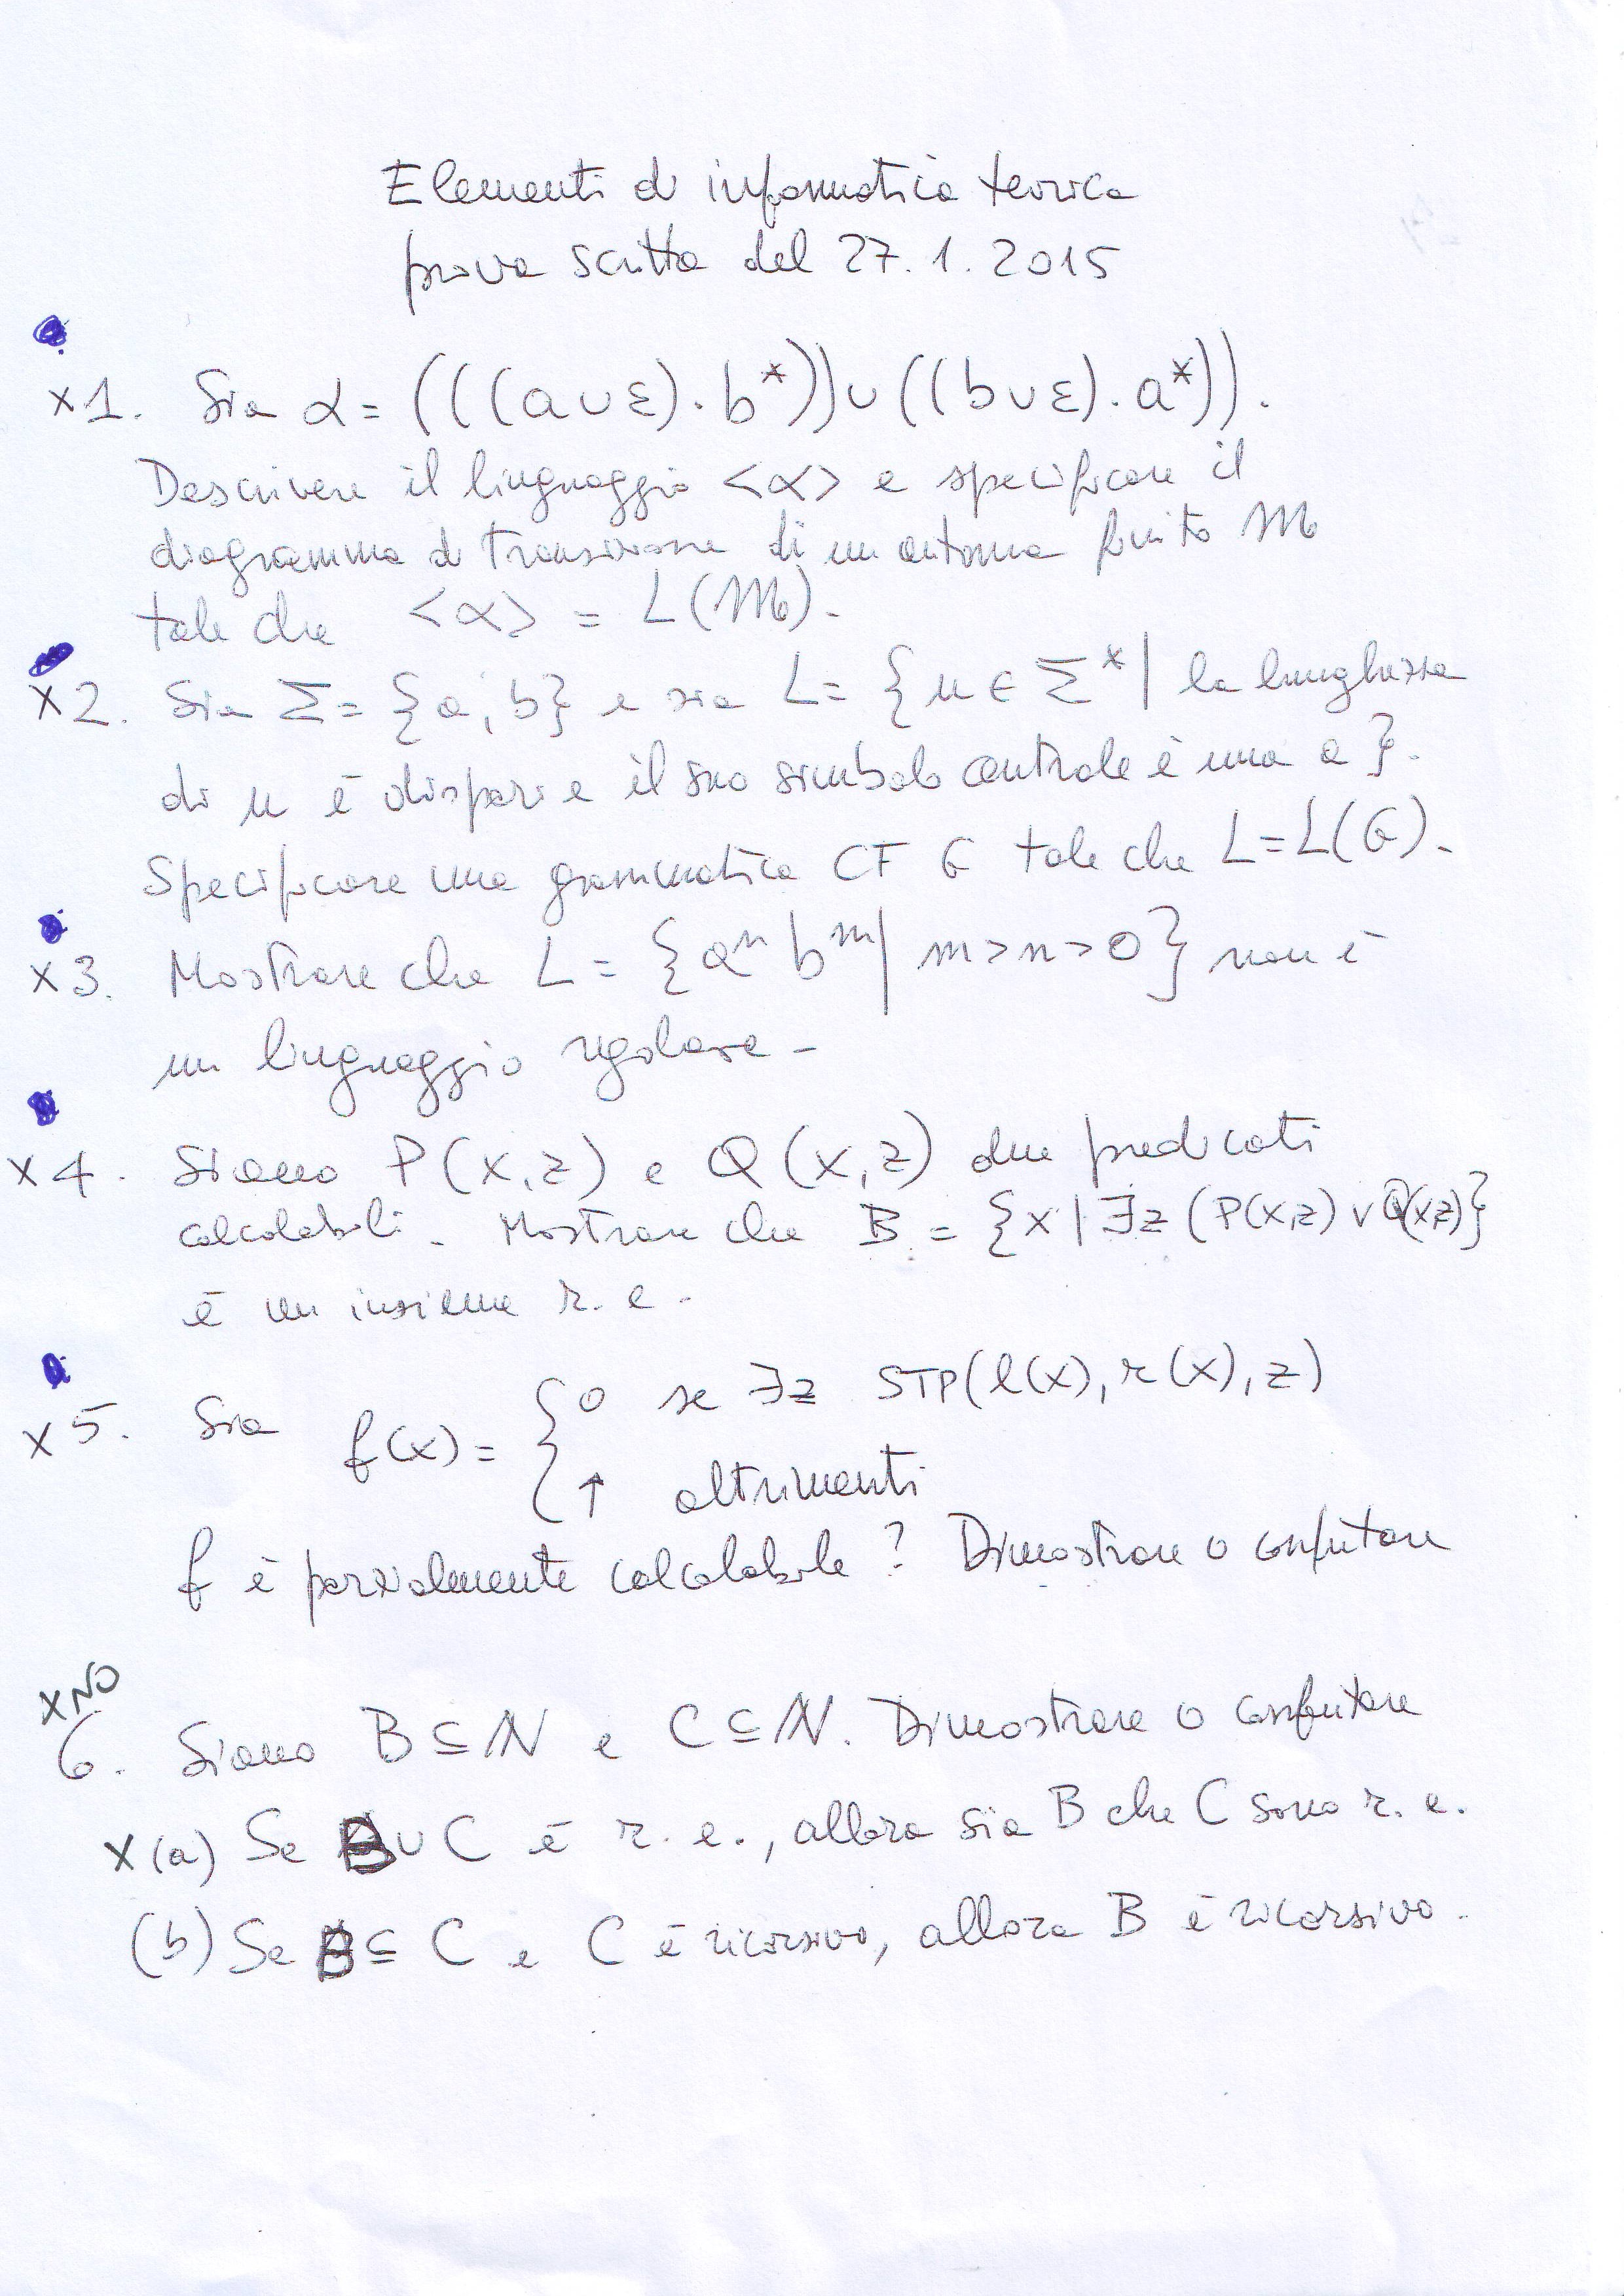 Elementi di informatica teorica
prova scritta del 27.1.2015
x1. Sia α = (((a∪ε)·b*))∪((b∪ε)·a*)).
Descrivere il linguaggio <α> e specificare il
diagramma di transizione di un automa finito M
tale che <α> = L(M).
x2. Sia Σ = {a, b} e sia L = {u ∈ Σ* | la lunghezza
di u è dispari e il suo simbolo centrale è una a}.
Specificare una grammatica CF G tale che L = L(G).
x3. Mostrare che L = {aⁿ bᵐ | m > n > 0} non è
un linguaggio regolare.
x4. Siano P(x,z) e Q(x,z) due predicati
calcolabili. Mostrare che B = {x | ∃z (P(x,z) ∨ Q(x,z)}
è un insieme r.e.
x5. Sia f(x) = { 0 se ∃z STP(l(x), r(x), z)
↑ altrimenti
f è parzialmente calcolabile? Dimostrare o confutare
x NO
6. Siano B ⊆ N e C ⊆ N. Dimostrare o confutare
x (a) Se B ∪ C è r.e., allora sia B che C sono r.e.
(b) Se B ⊆ C e C è ricorsivo, allora B è ricorsivo.